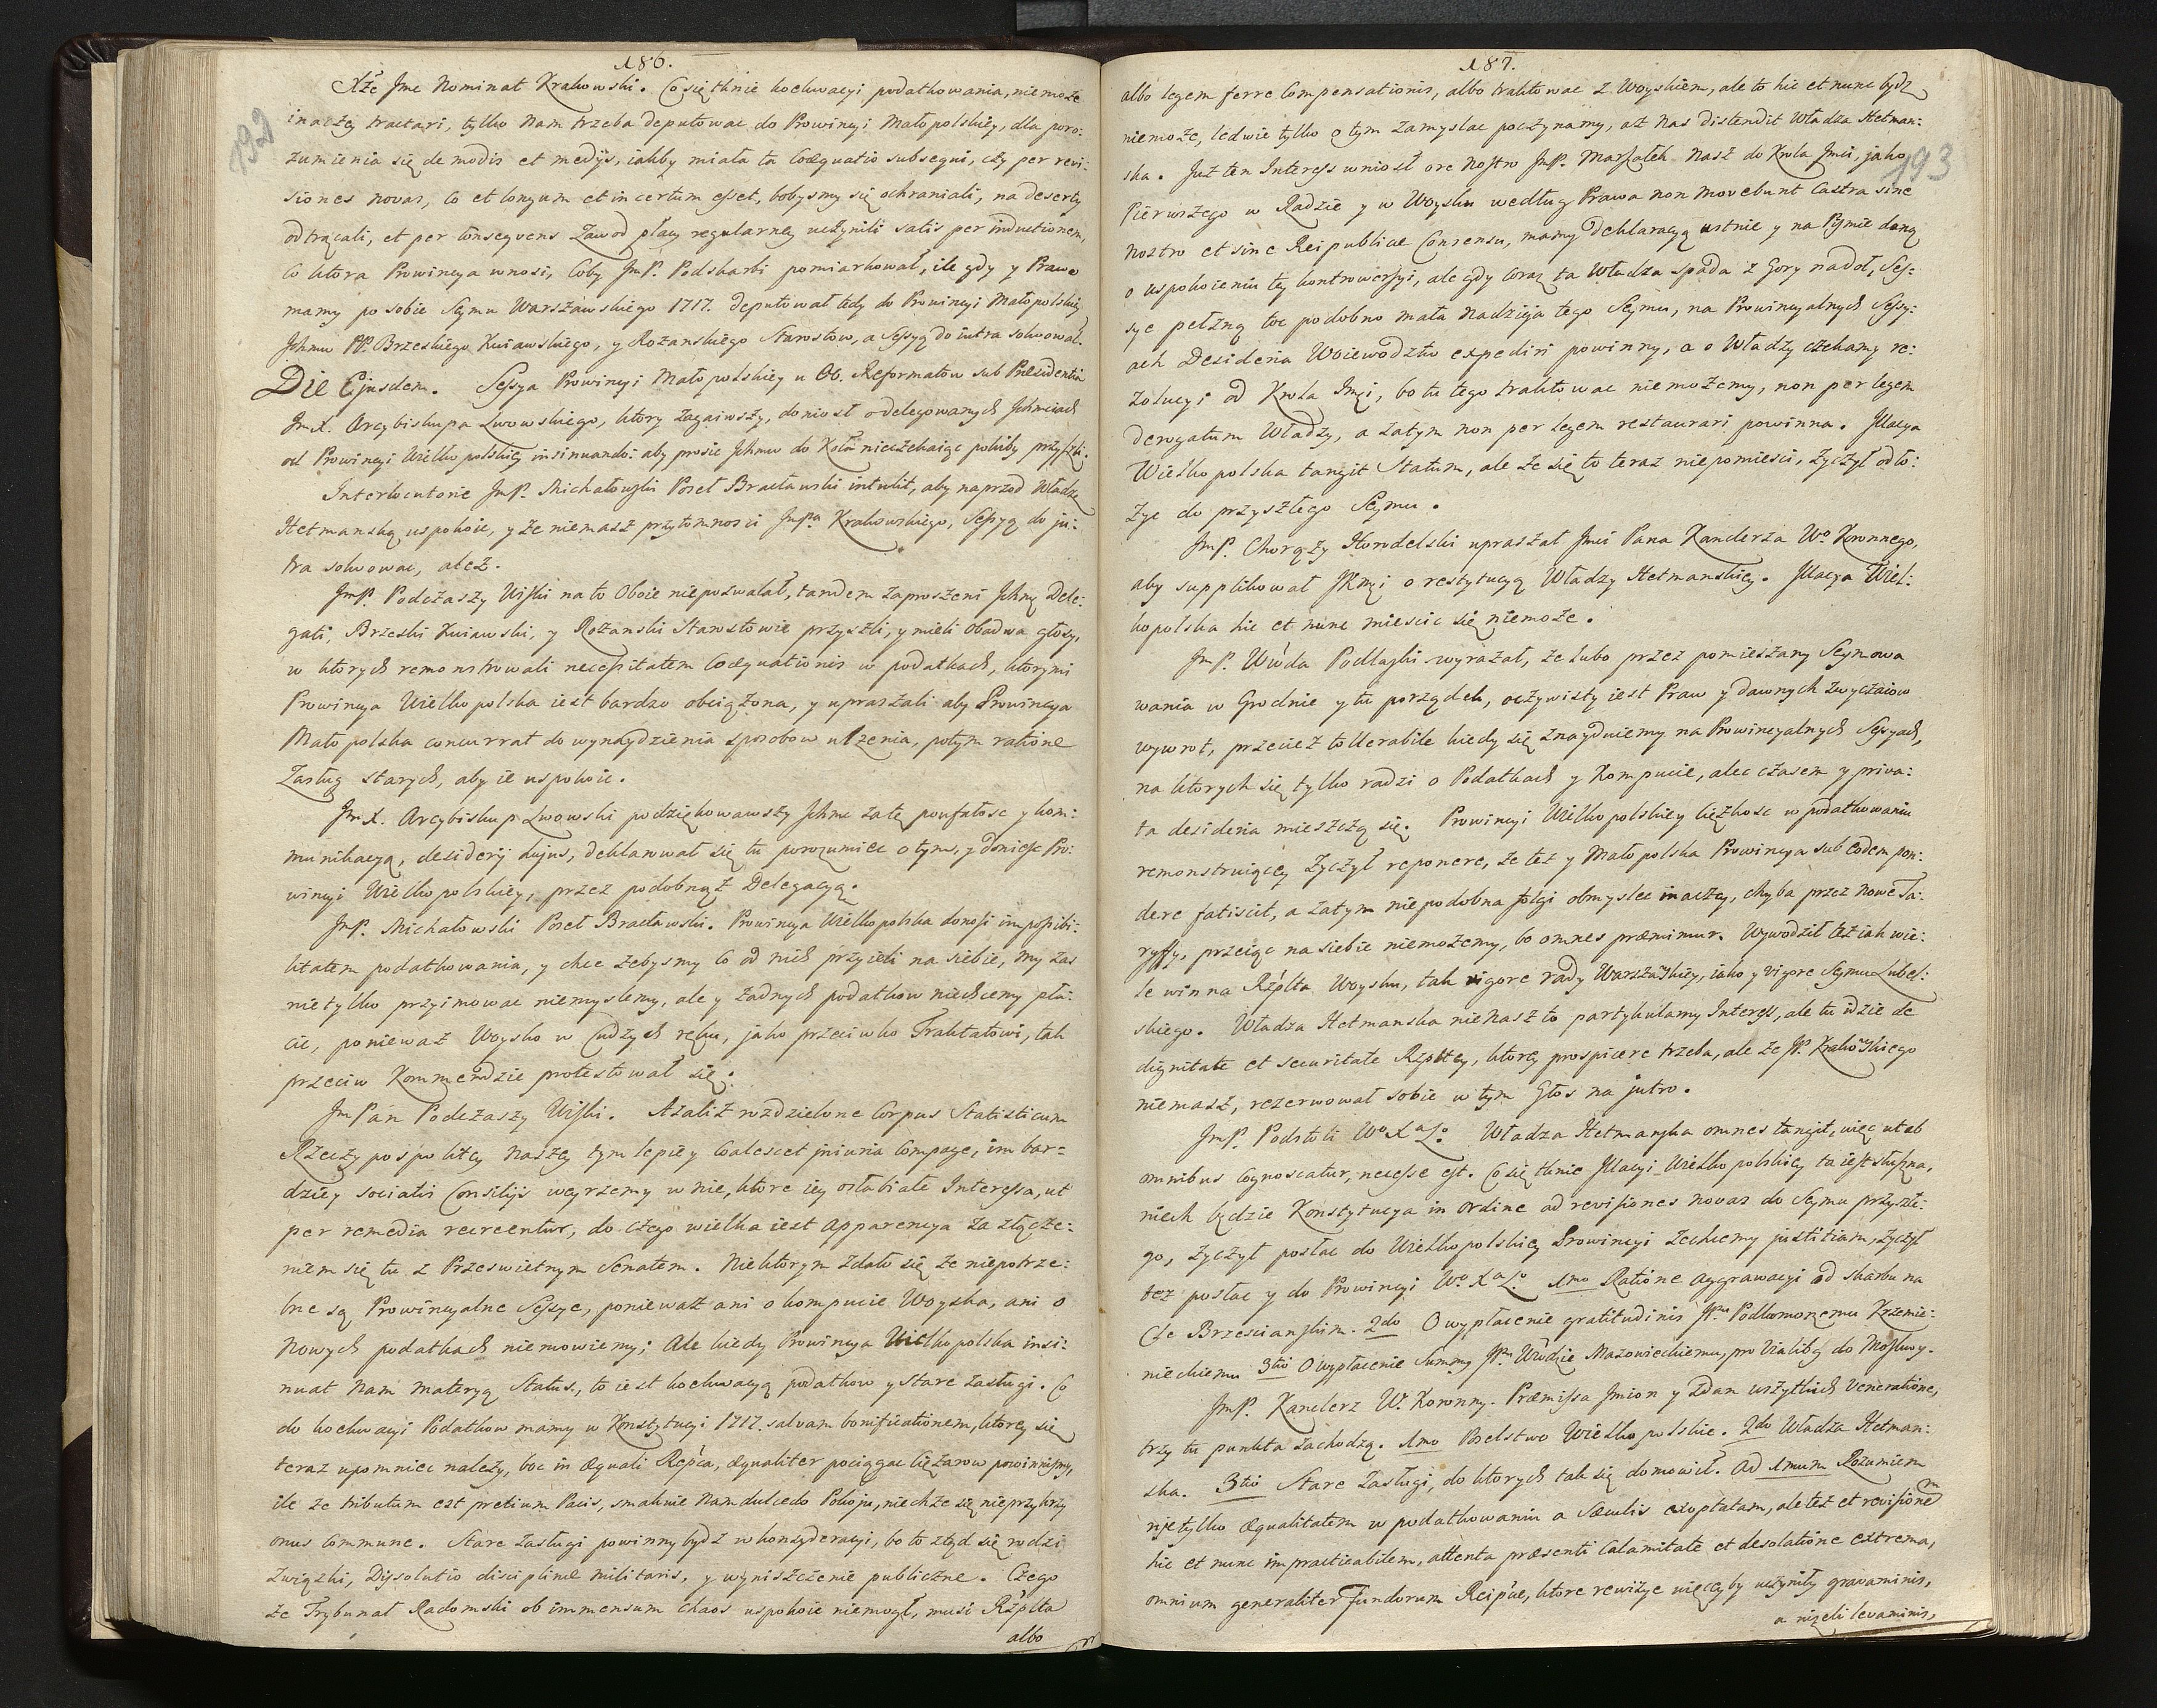 186.
192
Xże Jmc Nominat Krakowski. Co się tknie koekwacyi podatkowania, niemoże
inaczey tractari, tylko nam trzeba deputowac do Prowincyi Małopolskiey, dla poro:
zumienia się de modis et medijs, iakby miała ta Coæquatio subsequi, czy per revi:
siones novas, co et longum et incertum esset, bobysmy się ochraniali, na deserty
odtrącali, et per consequens zawod płacy regularney uczynili satis per inductionem,
Co ktora Prowincya wnosi, coby JmP. Podskarbi pomiarkował, ile gdy y Prawo
mamy po sobie Seymu Warszawskiego 1717. deputował tedy do Prowincyi Małopolskiey
Jchmu PP. Brzeskiego Kuiawskiego, y Rozanskiego Starostow, a Sessyą do iutra solwował.
Die Ejusdem. Sessya Prowincyi Małopolskiey u Ob. Reformatow sub Præsidentia
JmX. Arcybiskupa Lwowskiego, ktory zagaiwszy, doniosł o delegowanych Jchmciach
od Prowincyi Wielkopolskiey insinuando: aby prosic Jchmw do Koła nieczekaiąc pokiby przyszli.
Interlocutorie JmP. Michałowski Poseł Bracławski intulit, aby naprzod Władzę
Hetmanską uspokoic, y ze niemasz przytomnosci JmPa Krakowskiego, Sessyą do ju:
tra solwowac, atez.
JmP. Podczaszy Wiski na to oboie niepozwalał, tandem zaproszeni Jchmę Dele:
gati, Brzeski Kuiawski, y Rożanski Starostowie przyszli, y mieli obadwa głosy,
w ktorych remonstrowali necessitatem Coæquationis w podatkach, ktorymi
Prowincya Wielkopolska iest bardzo obciążona, y upraszali aby Prowincya
Małopolska concurrat do wynaydzienia sposobow ulzenia, potym ratione
Zasług starych, aby ie uspokoic.
JmX. Arcybiskup Lwowski podziękowawszy Jchmc za tę poufałosc y kom:
munikacyą, desiderij hujus, deklarował się tu porozumiec o tym, y doniesc Pro:
wincyi Wielkopolskiey, przez podobnąż Delegacyą.
JmP. Michałowski Poseł Bracławski. Prowincya Wielkopolska donosi impossibi:
litatem podatkowania, y chce zebysmy co od nich przyieli na siebie, my zas
nietylko przyimowac niemyslemy, ale y żadnych podatkow niechcemy pła:
cic, poniewaz Woysko w Cudzych ręku, jako przeciwko Traktatowi, tak
przeciw Kommendzie protestował się.
JmPan Podczaszy Wiski. Azaliż rozdzielone Corpus Statisticum
Rzeczypospolitey naszey tym lepiey coalescet jniuria Compage, im bar=
dziey sociatis Consilijs weyrzemy w nie, ktore iey osłabiałe Interessa, ut
per remedia recreentur, do czego wielka iest apparencya za złącze:
niem się tu z Przeswietnym Senatem. Niektorym zdało się ze niepotrze:
bne są Prowincyalne Sessye, poniewaz ani o kompucie Woyska, ani o
Nowych podatkach niemowiemy; Ale kiedy Prowincya Wielkopolska insi:
nuat nam materyą Status, to iest koekwacyą podatkow y stare zasługi. Co
do koekwacyi Podatkow mamy w Konstytucyi 1717. salvam bonificationem, ktorey się
teraz upomniec należy, boc in æquali Repca, æqualiter pociągac cięzarow powinnismy,
ile ze tributum est pretium Pacis, smaknie nam dulcedo Pokoju, niechze się nieprzykrzy
onus Commune. Stare zasługi powinny bydz w konsyderacyi, bo to ztąd się rodzi
związki, Dissolutio disciplinæ militaris, y wyniszczenie publiczne. Czego
ze Trybunał Radomski ob immensum chaos uspokoic niemogł, musi Rzplta
albo
187.
193
albo legem ferre Compensationis, albo traktowac z Woyskiem, ale to hic et nunc bydz
niemoże, ledwie tylko o tym zamyslac poczynamy, az nas distendit Władza Hetman:
ska. Juz ten Interess wniosł ore nostro JmP. Marszałek nasz do Krola Jmci, jako
Pierwszego w Radzie y w Woysku według Prawa non movebunt Castra sine
nostro et sine Reipublicæ Consensu, mamy deklaracyą ustnie y na Pismie daną
o uspokoieniu tey kontrowersyi, ale gdy coraz ta Władza spada z gory nadoł, Ses:
sye pełzną toc podobno mała nadzieja tego Seymu, na Prowincyalnych Sessy:
ach Desideria Woiewodztw expediri powinny, a o Władzy czekamy re:
zolucyi od Krola Jmci, bo tu tego traktowac niemożemy, non per legem
derogatum Władzy, a zatym non per legem restaurari powinna. Jllacya
Wielkopolska tangit Statum, ale ze się to teraz niepomiesci, życzył odło:
zyc do przyszłego Seymu.
JmP. Chorąży Horodelski upraszał Jmci Pana Kanclerza Wo. Koronnego,
aby supplikował JKmci o restytucyą Władzy Hetmanskiey. Jllacya Wiel:
kopolska hic et nunc miescic się niemoże.
JmP. Wwda Podlaski wyrażał, ze lubo przez pomieszany Seymowa
wania w Grodnie y tu porządek, oczywisty iest Praw y dawnych zwyczaiow
wywrot, przeciez tollerabile kiedy się znayduiemy na Prowincyalnych Sessyach,
na ktorych się tylko radzi o Podatkach y Kompucie, alec czasem y priva:
ta desideria mieszczą się. Prowincyi Wielkopolskiey cięzkosc w podatkowaniu
remonstruiącey życzył reponere, ze tez y Małopolska Prowincya sub eodem pon:
dere fatiscit, a zatym niepodobna folgi obmyslec inaczey, chyba przez nowe Ta:
ryffy, przeiąc na siebie niemożemy, bo omnes præmimur. Wywodził tez iak wie:
le winna Rzplta Woysku, tak vigore rady Warszawskiey, iako y vigore Seymu Lubel:
skiego. Władza Hetmanska nie nasz to partykularny Interess, ale tu idzie de
dignitate et securitate Rzpltey, ktorey prospicere trzeba, ale ze JP. Krakowskiego
niemasz, rezerwował sobie w tym Głos na jutro.
JmP. Podstoli Wo Xa Lo. Władza Hetmanska omnes tangit, więc ut ab
omnibus cognoscatur, necesse est. Co się tknie Jllacyi Wielkopolskiey ta iest słuszna,
niech będzie Konstytucya in ordine ad revisiones novas do Seymu przyszłe:
go, życzył posłac do Wielkopolskiey Prowincyi zechcemy justitiam, życzył
tez posłac y do Prowincyi Wo. Xa Lo. 1mo Ratione aggrawacyi od skarbu na
Cle Brzescianskim. 2do O wypłacenie gratitudinis JPu Podkomorzemu Krzemie:
nieckiemu 3tio O wypłacenie Summy JPu Wwdzie Mazowieckiemu, pro Vialibus do Moskwy.
JmP. Kanclerz W. Koronny. Præmissa Jmion y zdan wszytkich veneratione,
trzy tu punkta zachodzą. 1mo Poselstwo Wielkopolskie. 2do Władza Hetman:
ska. 3tio Stare zasługi, do ktorych tak się domowił. Ad 1mum Rozumiem
nietylko æqualitatem w podatkowaniu a Sæculis exoptatam, ale tez et revisionem
hic et nunc impracticabilem, attenta præsenti Calamitate et desolatione extrema,
omnium generaliter fundorum Reipcæ, ktore rewizye więceyby uczyniły gravaminis,
a niżeli levaminis,